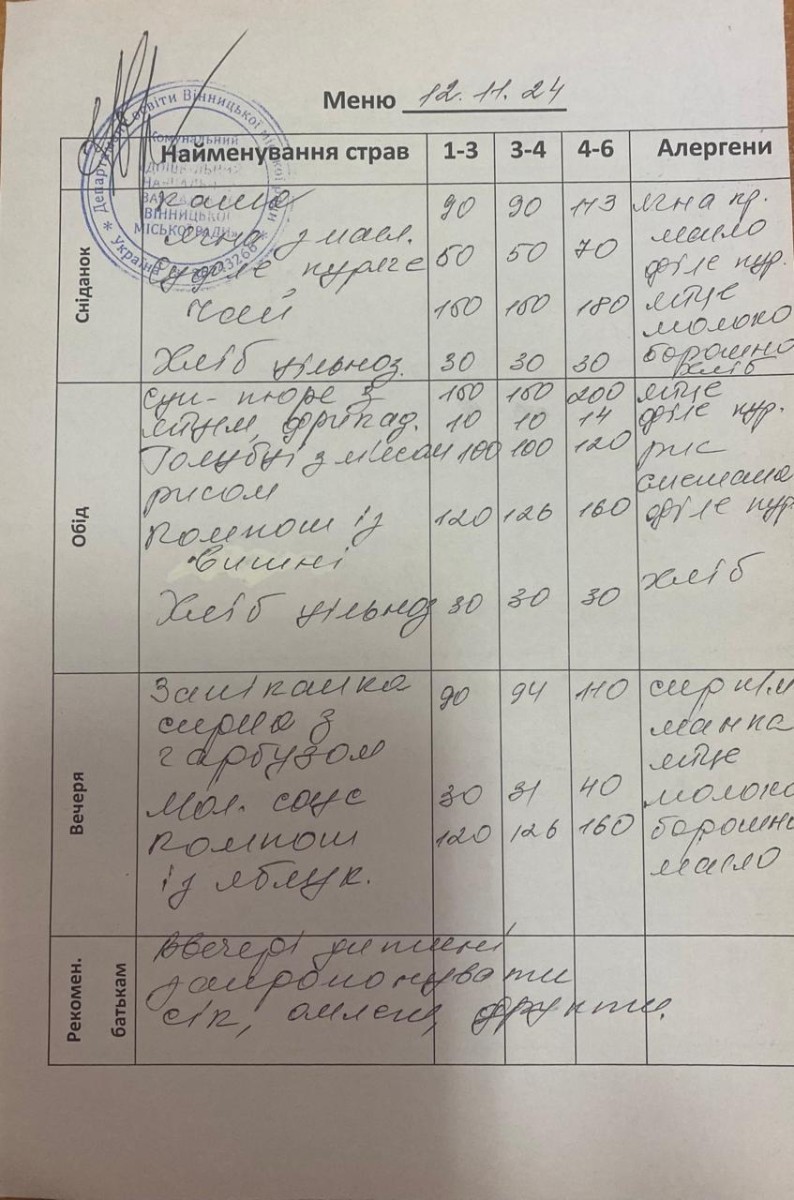 Меню 12.11.24
Найменування страв 1-3 3-4 4-6 Алергени
Департамент освіти Вінницької міської ради
Комунальний
ВІННИЦЬКОЇ
МІСЬКОЇ РАДИ»
* Україна *
Сніданок
Каша 90 90 113 ячна кр.
ячна з масл. масло
Суфле куряче 50 50 70 філе кур.
яйце
Чай 150 150 180 молоко
борошно
Хліб цільноз. 30 30 30 хліб
Обід
Суп-пюре з 150 150 200 яйце
яйцем, фрикад. 10 10 14 філе кур.
Голубці з м'ясом 100 100 120 рис
рисом сметана
Компот із 120 126 160 філе кур.
вишні
Хліб цільноз 30 30 30 хліб
Вечеря
Запіканка 90 94 110
сирна з манка
гарбузом яйце
Мол. соус 30 31 40 молоко
Компот 120 126 160 борошно
із яблук. масло
Рекомен.
батькам
Ввечері дитині
запропонувати
сік, омлет, фрукти.